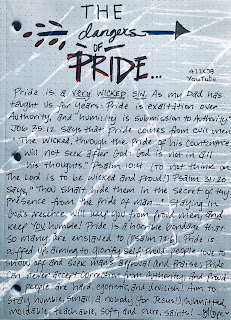 THE
dangers
OF
PRIDE...
411XJB
YouTube
Pride is a very wicked sin. As my Dad has
taught us for years: Pride is exaltation over
Authority, and "humility is submission to Authority"
JOB 35:12 says that Pride comes from evil men.
"The wicked, through the pride of his countenance,
will not seek after God: God is not in all
his thoughts." Psalm 10:4 (To not think on
The Lord is to be wicked and Proud!) Psalm 31:20
says, "Thou shalt hide them in the secret of thy
presence from the pride of man..." Staying in
God's presence will keep you from proud men, and
keep YOU humble! Pride is a horrible bondage that
so many are enslaved to (Psalm 73:6). Pride is
puffed up, aiming to Glorify self. Proud people love to
show off and seek man's approval and praises. Pride
can never accept correction from Authority and Proud
people are hard, egotistic, and devilish! Aim to
stay humble, small (a nobody for Jesus!), submitted,
moldable, teachable, soft and pure, saints!